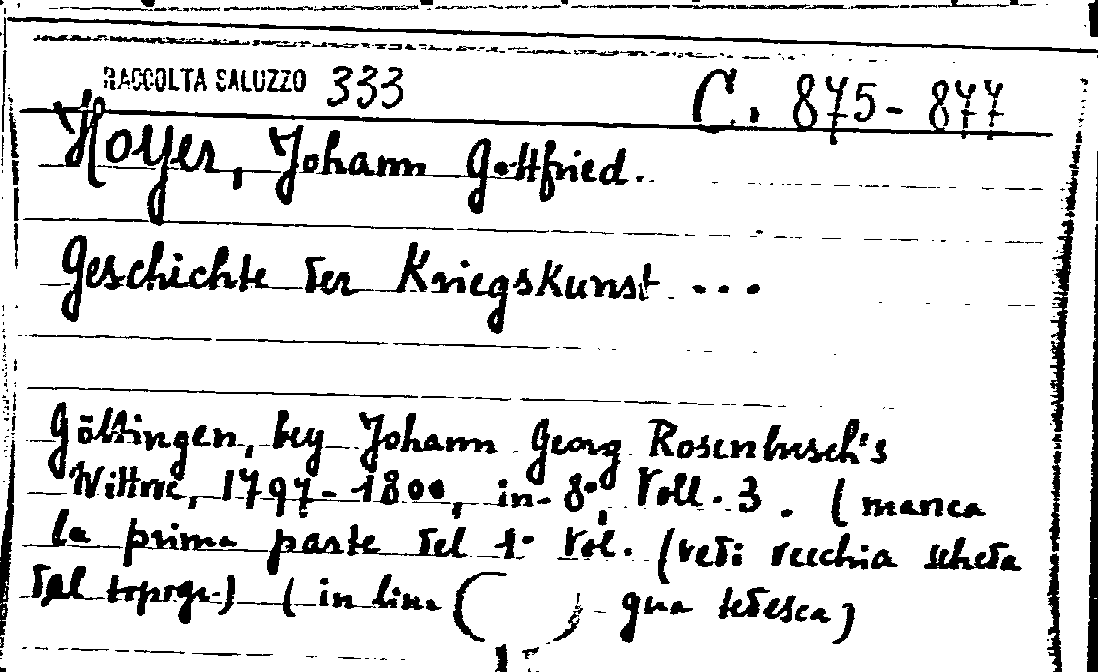 RACCOLTA SALUZZO 333 C. 875-877
Hoyer, Johann Gottfried.
Geschichte der Kriegskunst ...
Göttingen, bey Johann Georg Rosenbusch's
Wittwe, 1797-1800, in-8°, Voll. 3. (manca
la prima parte del 1° Vol. (vedi vecchia scheda
del) (in lin gua tedesca)